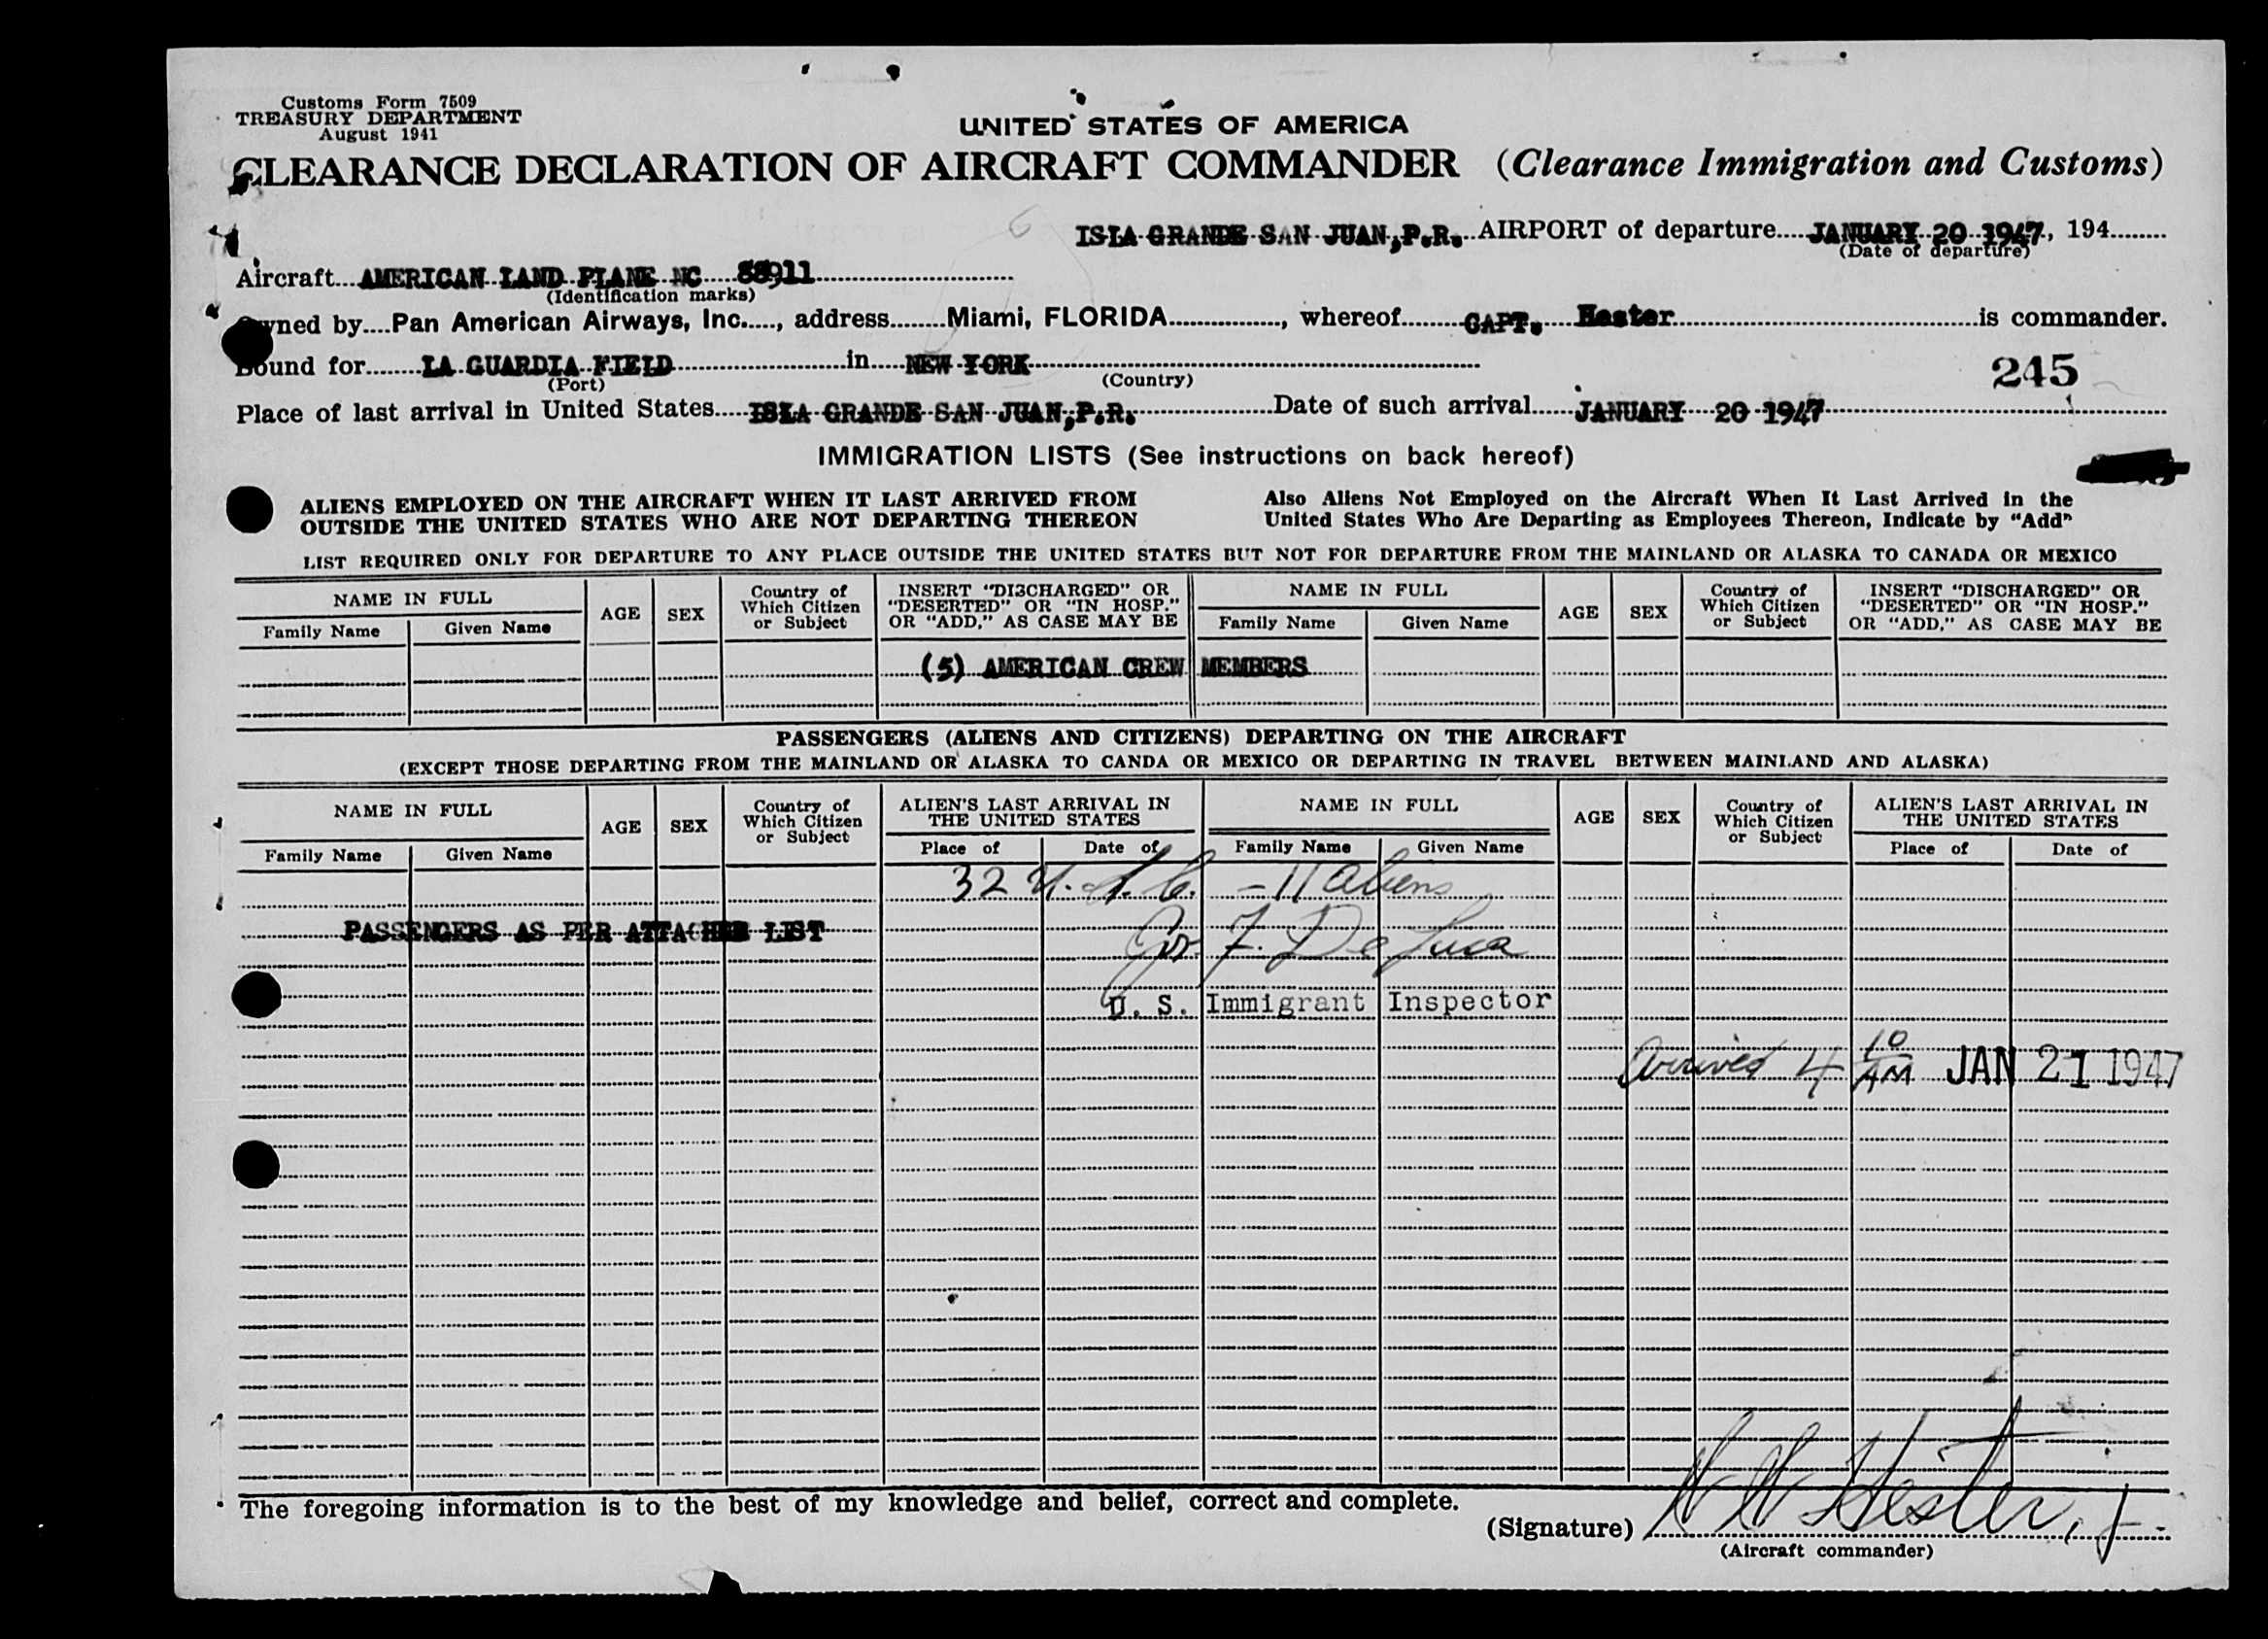 Customs Form 7509
TREASURY DEPARTMENT
August 1941
UNITED STATES OF AMERICA
CLEARANCE DECLARATION OF AIRCRAFT COMMANDER (Clearance Immigration and Customs)
ISLA GRANDE SAN JUAN,P.R. AIRPORT of departure JANUARY 20 1947, 194
(Date of departure)
Aircraft AMERICAN LAND PLANE NC 88911
(Identification marks)
Owned by Pan American Airways, Inc., address Miami, FLORIDA, whereof CAPT. Hester is commander.
Bound for LA GUARDIA FIELD in NEW YORK
(Port) (Country)
245
Place of last arrival in United States ISLA GRANDE SAN JUAN,P.R. Date of such arrival JANUARY 20 1947
IMMIGRATION LISTS (See instructions on back hereof)
ALIENS EMPLOYED ON THE AIRCRAFT WHEN IT LAST ARRIVED FROM
OUTSIDE THE UNITED STATES WHO ARE NOT DEPARTING THEREON
Also Aliens Not Employed on the Aircraft When It Last Arrived in the
United States Who Are Departing as Employees Thereon, Indicate by "Add"
LIST REQUIRED ONLY FOR DEPARTURE TO ANY PLACE OUTSIDE THE UNITED STATES BUT NOT FOR DEPARTURE FROM THE MAINLAND OR ALASKA TO CANADA OR MEXICO
NAME IN FULL
Family Name Given Name
AGE
SEX
Country of
Which Citizen
or Subject
INSERT "DISCHARGED" OR
"DESERTED" OR "IN HOSP."
OR "ADD," AS CASE MAY BE
NAME IN FULL
Family Name Given Name
AGE
SEX
Country of
Which Citizen
or Subject
INSERT "DISCHARGED" OR
"DESERTED" OR "IN HOSP."
OR "ADD," AS CASE MAY BE
(5) AMERICAN CREW MEMBERS
PASSENGERS (ALIENS AND CITIZENS) DEPARTING ON THE AIRCRAFT
(EXCEPT THOSE DEPARTING FROM THE MAINLAND OR ALASKA TO CANDA OR MEXICO OR DEPARTING IN TRAVEL BETWEEN MAINLAND AND ALASKA)
NAME IN FULL
Family Name Given Name
AGE
SEX
Country of
Which Citizen
or Subject
ALIEN'S LAST ARRIVAL IN
THE UNITED STATES
Place of Date of
NAME IN FULL
Family Name Given Name
AGE
SEX
Country of
Which Citizen
or Subject
ALIEN'S LAST ARRIVAL IN
THE UNITED STATES
Place of Date of
32 U.S.C. - 11 aliens
PASSENGERS AS PER ATTACHED LIST
Jos. F. De Luca
U. S. Immigrant Inspector
Arrived 4 10 AM JAN 21 1947
The foregoing information is to the best of my knowledge and belief, correct and complete.
(Signature) Hester, Jr.
(Aircraft commander)